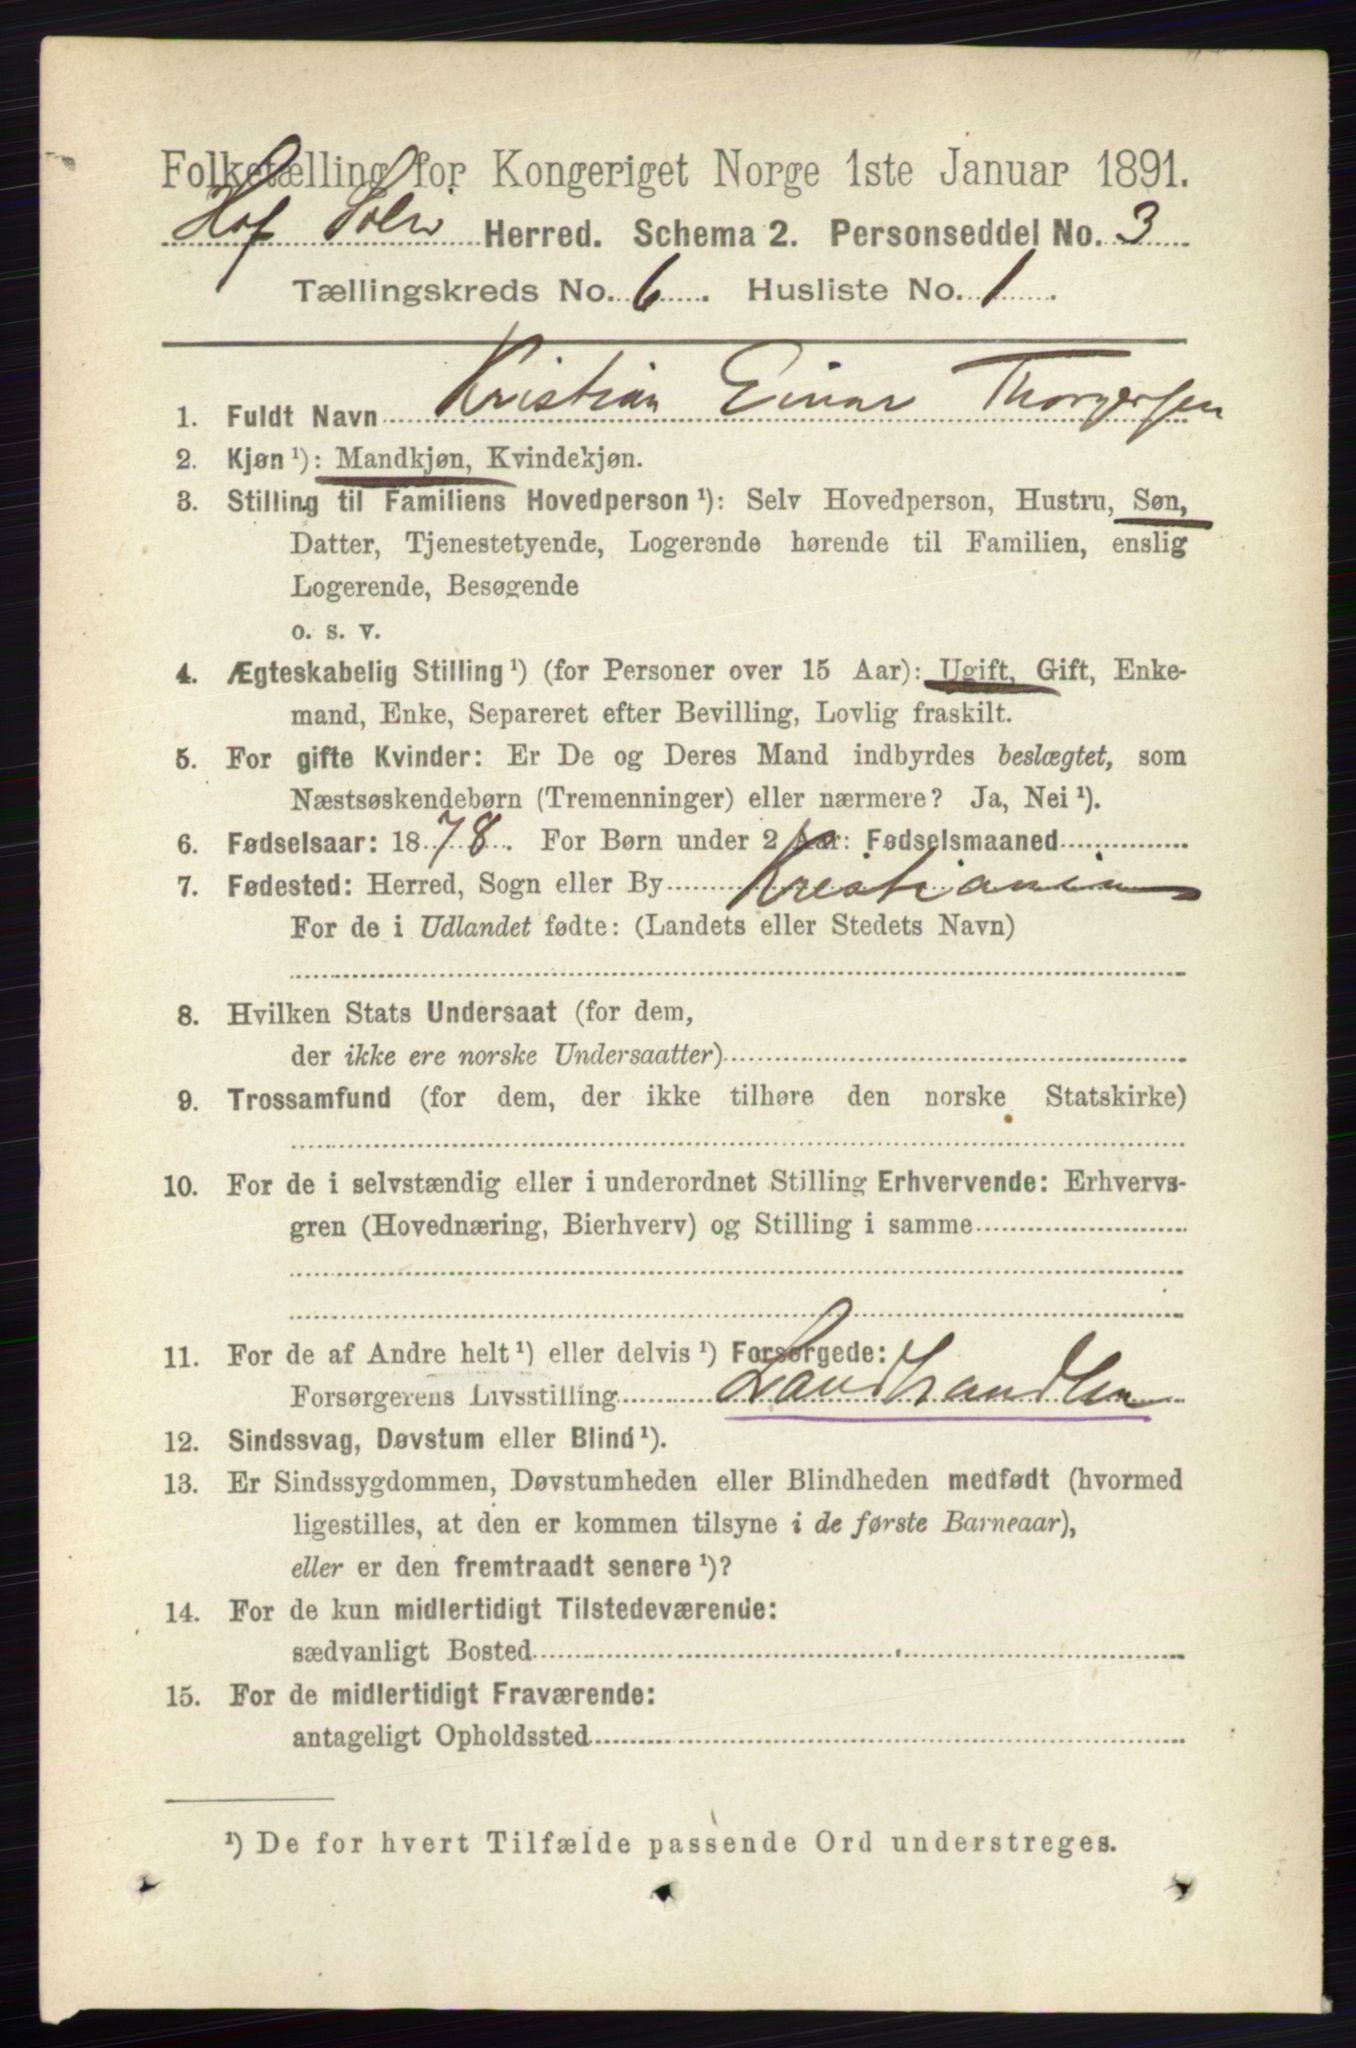 Folketælling for Kongeriget Norge 1ste Januar 1891.
Hof Solør Herred. Schema 2. Personseddel No. 3
Tællingskreds No. 6. Husliste No. 1.
1. Fuldt Navn Kristian Einar Thorgersen
2. Kjøn ¹): Mandkjøn, Kvindekjøn.
3. Stilling til Familiens Hovedperson ¹): Selv Hovedperson, Hustru, Søn,
Datter, Tjenestetyende, Logerende hørende til Familien, enslig
Logerende, Besøgende
o. s. v.
4. Ægteskabelig Stilling ¹) (for Personer over 15 Aar): Ugift, Gift, Enke-
mand, Enke, Separeret efter Bevilling, Lovlig fraskilt.
5. For gifte Kvinder: Er De og Deres Mand indbyrdes beslægtet, som
Næstsøskendebørn (Tremenninger) eller nærmere? Ja, Nei ¹).
6. Fødselsaar: 1878. For Børn under 2 Aar: Fødselsmaaned
7. Fødested: Herred, Sogn eller By Kristiania
For de i Udlandet fødte: (Landets eller Stedets Navn)
8. Hvilken Stats Undersaat (for dem,
der ikke ere norske Undersaatter)
9. Trossamfund (for dem, der ikke tilhøre den norske Statskirke)
10. For de i selvstændig eller i underordnet Stilling Erhvervende: Erhvervs-
gren (Hovednæring, Bierhverv) og Stilling i samme
11. For de af Andre helt ¹) eller delvis ¹) Forsørgede:
Forsørgerens Livsstilling Landhandler
12. Sindssvag, Døvstum eller Blind ¹).
13. Er Sindssygdommen, Døvstumheden eller Blindheden medfødt (hvormed
ligestilles, at den er kommen tilsyne i de første Barneaar),
eller er den fremtraadt senere ¹)?
14. For de kun midlertidigt Tilstedeværende:
sædvanligt Bosted
15. For de midlertidigt Fraværende:
antageligt Opholdssted
¹) De for hvert Tilfælde passende Ord understreges.